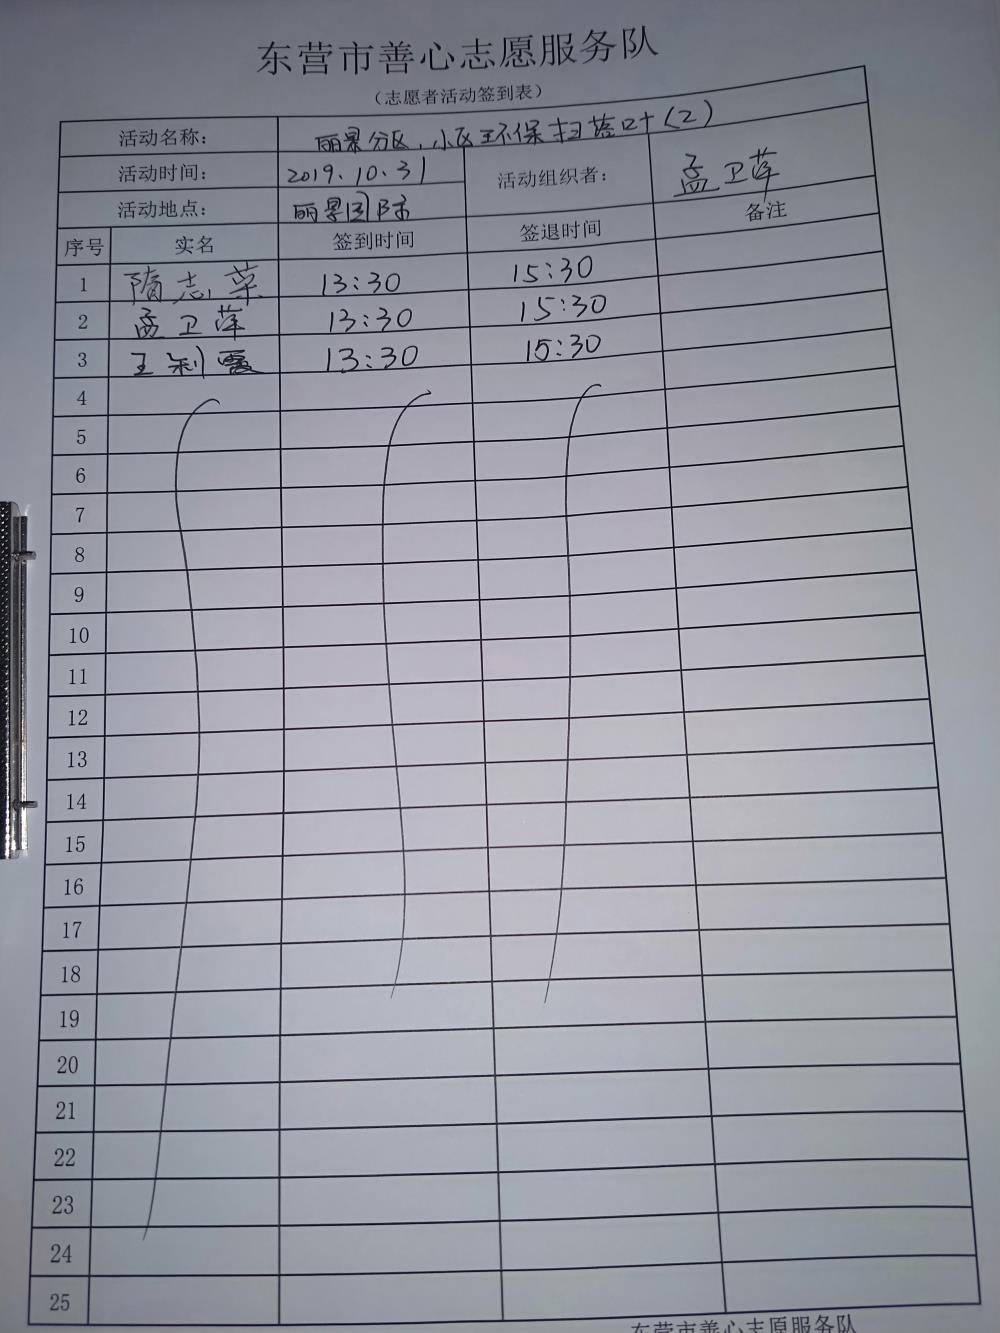 东营市善心志愿服务队
（志愿者活动签到表）
活动名称： 丽景分区，小区环保扫落叶（2）
活动时间： 2019.10.31 活动组织者： 孟卫萍
活动地点： 丽景国际
序号 实名 签到时间 签退时间 备注
1 隋志荣 13:30 15:30
2 孟卫萍 13:30 15:30
3 王利霞 13:30 15:30
4
5
6
7
8
9
10
11
12
13
14
15
16
17
18
19
20
21
22
23
24
25
东营市善心志愿服务队